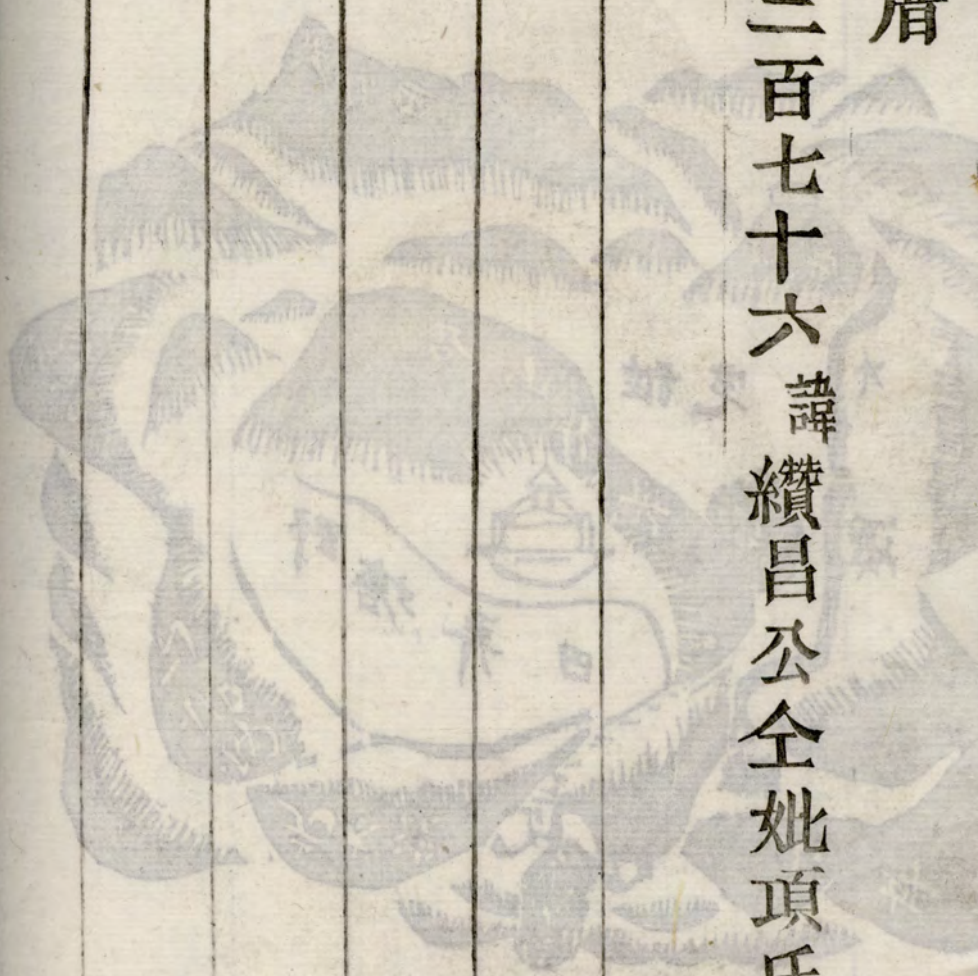 厝
二百七十六諱纘昌公仝妣項氏